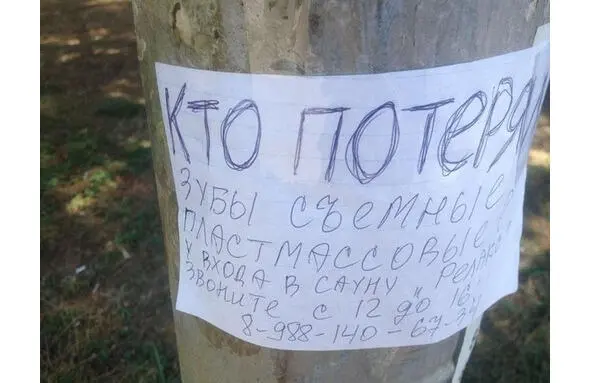 КТО ПОТЕРЯЛ
ЗУБЫ СЪЕМНЫЕ
ПЛАСТМАССОВЫЕ
У ВХОДА В САУНУ "РЕЛАКС"
ЗВОНИТЕ С 12 ДО 16
8-988-140-67-34